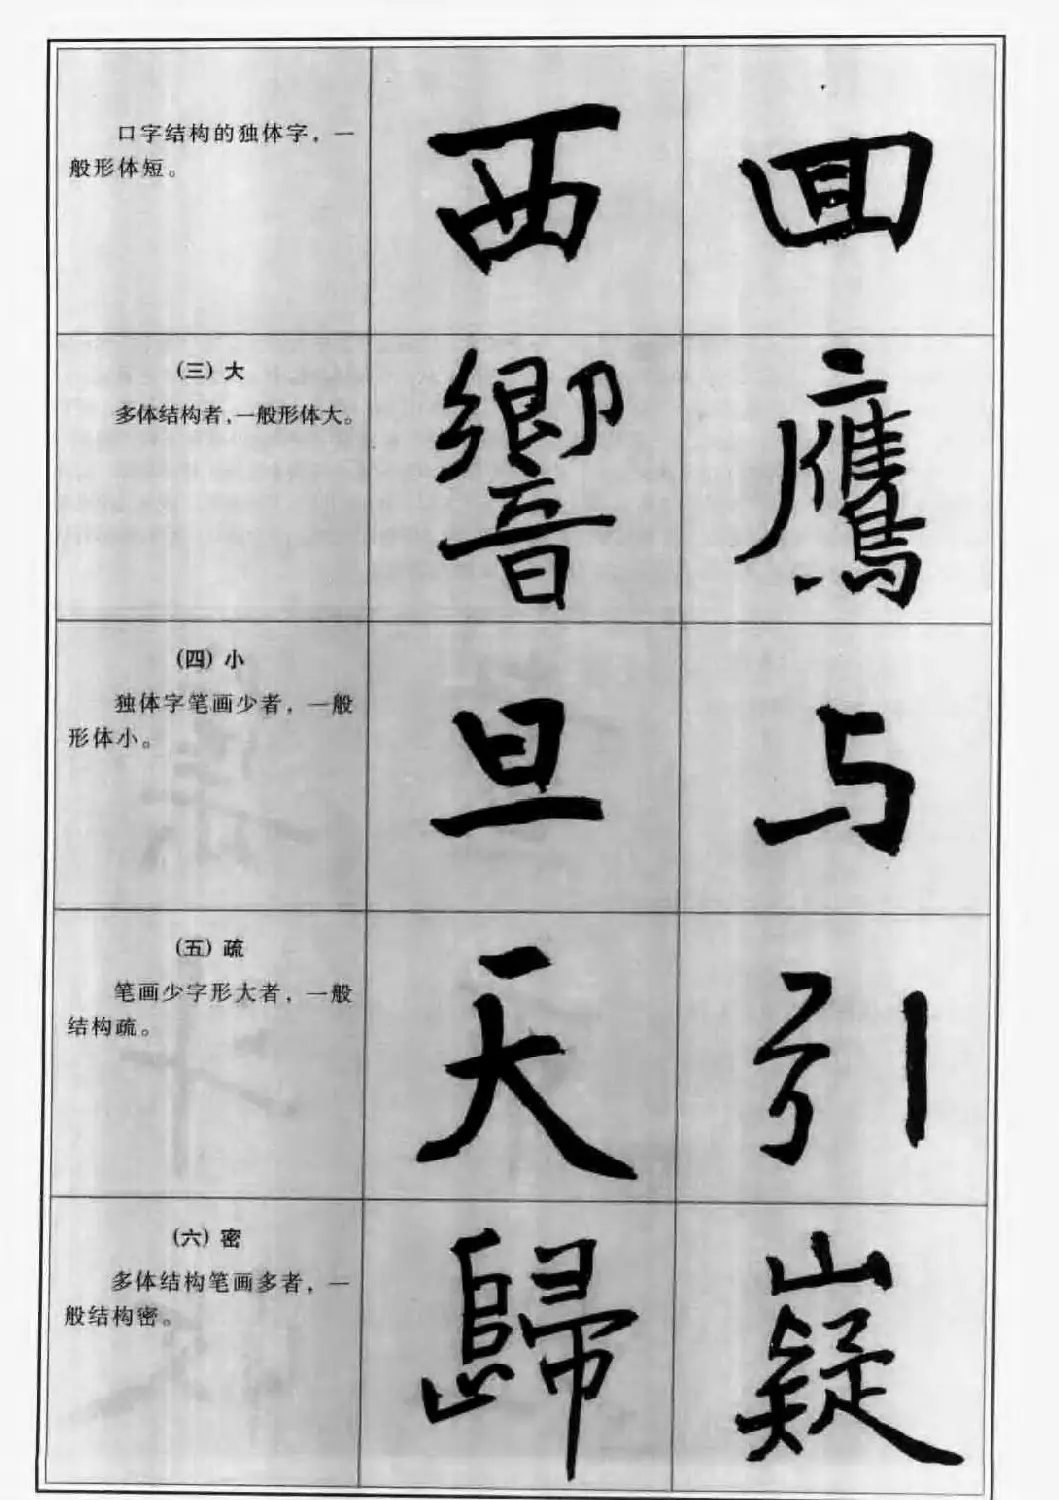 口字结构的独体字，一
般形体短。
西 回
（三）大
多体结构者，一般形体大。
響 鷹
（四）小
独体字笔画少者，一般
形体小。
旦 与
（五）疏
笔画少字形大者，一般
结构疏。
天 引
（六）密
多体结构笔画多者，一
般结构密。
歸 嶷